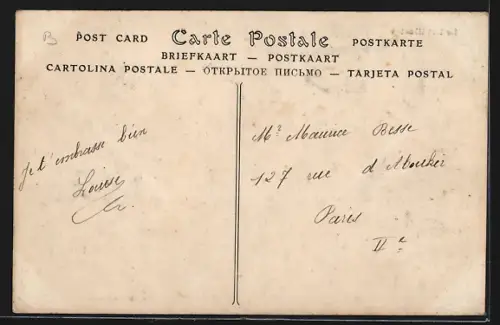 B
POST CARD Carte Postale POSTKARTE
BRIEFKAART — POSTKAART
CARTOLINA POSTALE — ОТКРЫТОЕ ПИСЬМО — TARJETA POSTAL
Je t'embrasse bien
Louise
Mr Maurice Besse
127 rue d'Aboukir
Paris
IIe